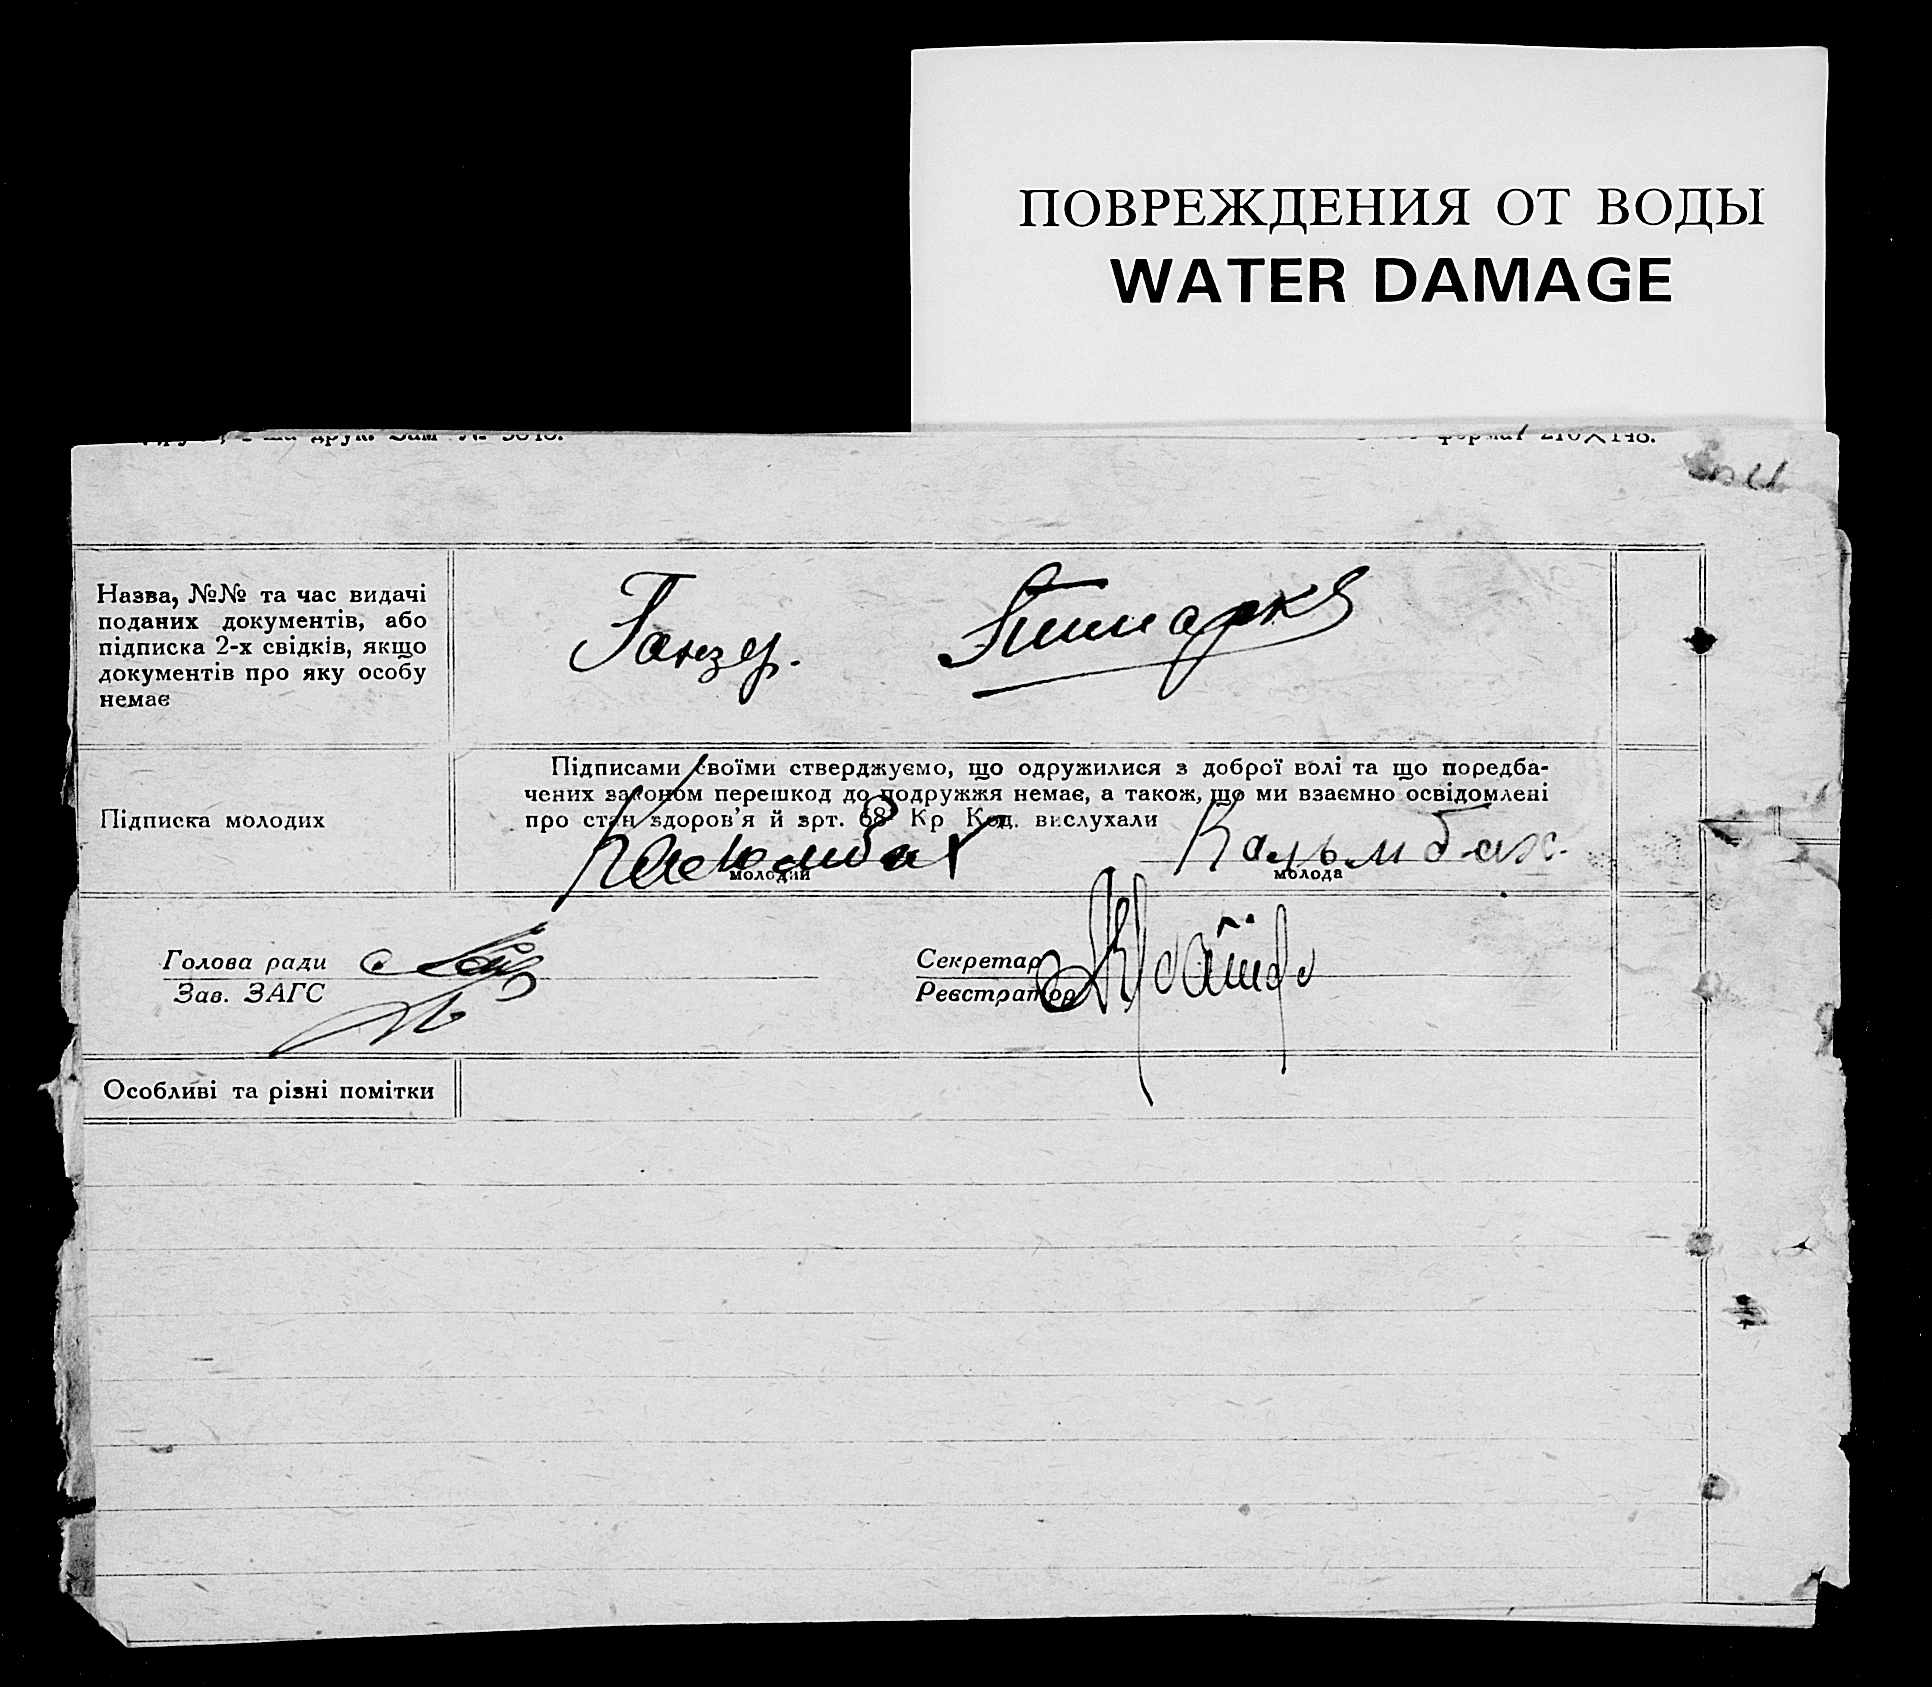 ПОВРЕЖДЕНИЯ ОТ ВОДЫ
WATER DAMAGE
друк. Зам № формат 210×148.
Назва, №№ та час видачі
поданих документів, або
підписка 2-х свідків, якщо
документів про яку особу
немає
Ганзер.
Підписка молодих
Підписами своїми стверджуємо, що одружилися з доброї волі та що поредба-
чених законом перешкод до подружжя немає, а також, що ми взаємно освідомлені
про стан здоров'я й арт. 68 Кр Код. вислухали
Кальмбах Кальмбах
молодий молода
Голова ради
Зав. ЗАГС
Секретар
Реєстратор
Особливі та різні помітки